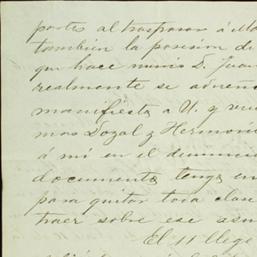 partes al traspasar á Ma
también la posesión de
que hace minis D. Juan
realmente se adueñ
manifiesta a U. y
mas Dozal y Hermoni
á mí en el denuncio
documento tenga en
para quitar toda clase
haer sobre ese asun
El 11 llegó